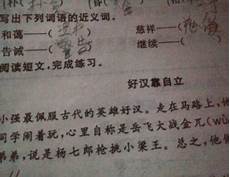 写出下列词语的近义词。
和蔼——( 慈祥——(
告诫——(警告 继续——(
阅读短文，完成练习。
好汉靠自立
小强最佩服古代的英雄好汉。走在马路上，他
同学闹着玩，心里自称是岳飞大战金兀(wù
弟弟，说是杨七郎枪挑小梁王。总之，他